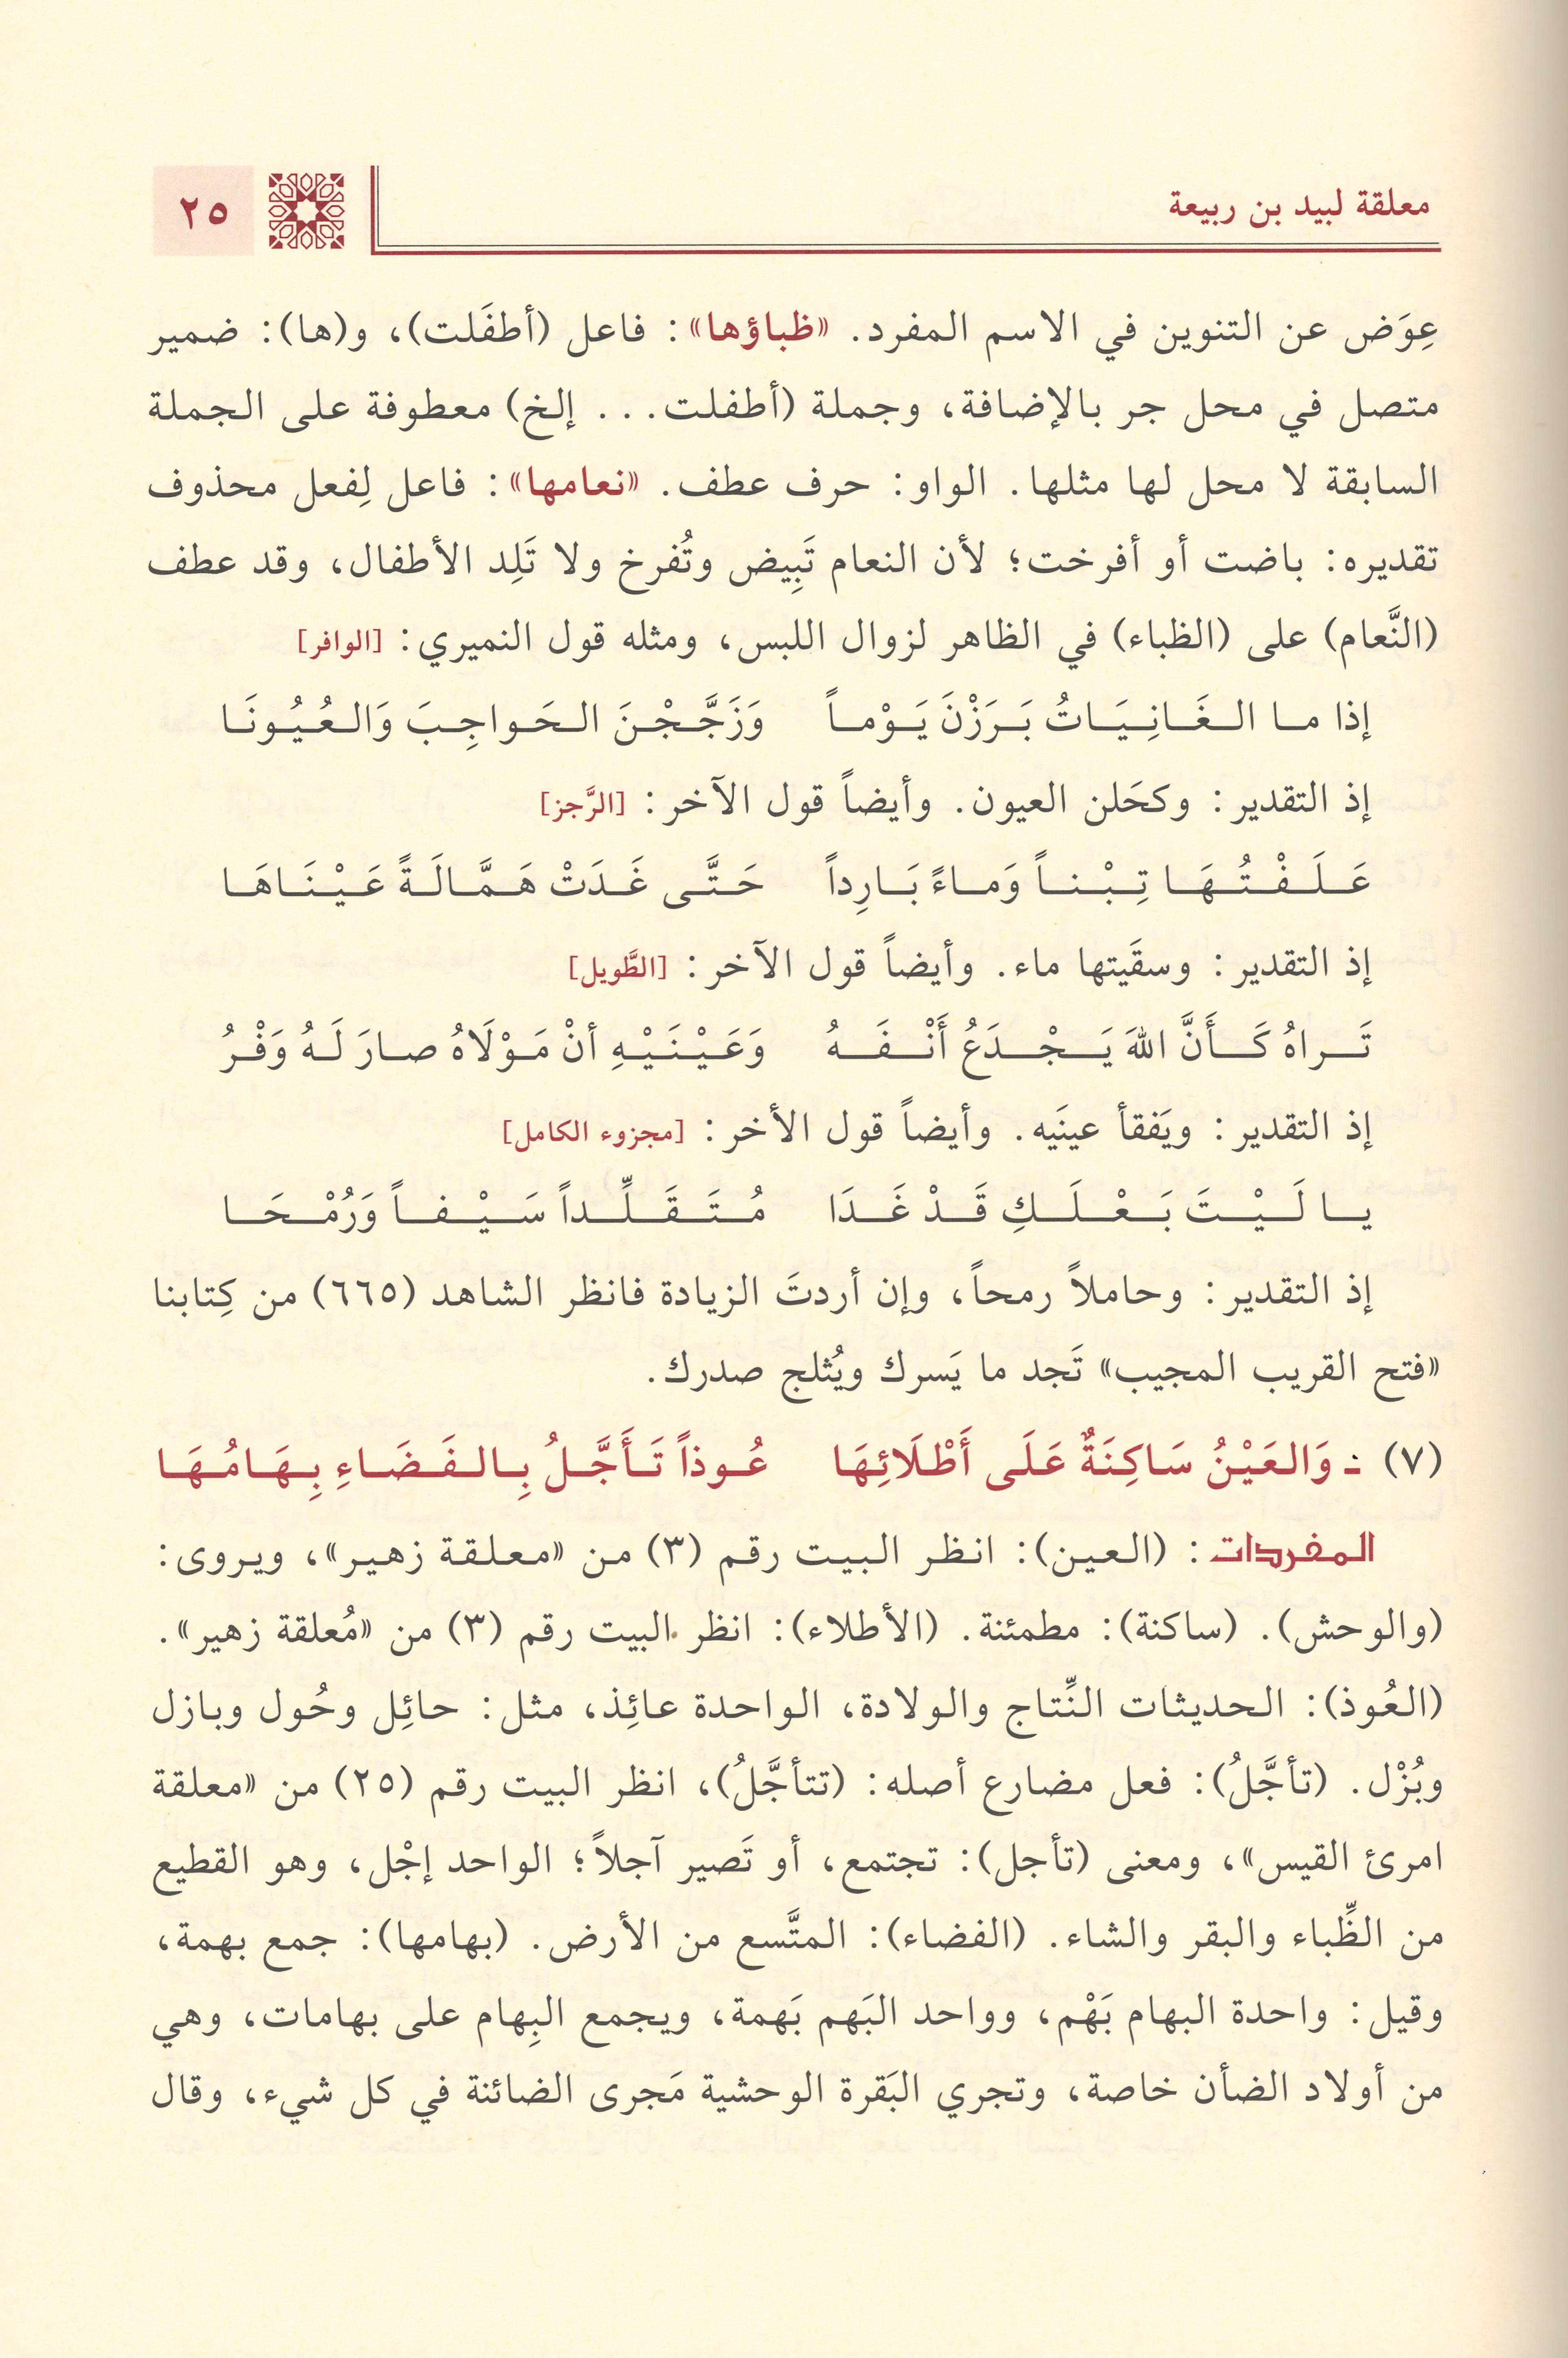 معلقة لبيد بن ربيعة
٢٥
عِوَض عن التنوين في الاسم المفرد. «ظباؤها»: فاعل (أطفَلت)، و(ها): ضمير
متصل في محل جر بالإضافة، وجملة (أطفلت... إلخ) معطوفة على الجملة
السابقة لا محل لها مثلها. الواو: حرف عطف. «نعامها»: فاعل لِفعل محذوف
تقديره: باضت أو أفرخت؛ لأن النعام تَبِيض وتُفرخ ولا تَلِد الأطفال، وقد عطف
(النَّعام) على (الظباء) في الظاهر لزوال اللبس، ومثله قول النميري: [الوافر]
إذا ما الغَانِيَاتُ بَرَزْنَ يَوْماً وَزَجَّجْنَ الحَواجِبَ وَالعُيُونَا
إذ التقدير: وكحَلن العيون. وأيضاً قول الآخر: [الرَّجز]
عَلَفْتُهَا تِبْناً وَماءً بَارِداً حَتَّى غَدَتْ هَمَّالَةً عَيْنَاهَا
إذ التقدير: وسقَيتها ماء. وأيضاً قول الآخر: [الطَّويل]
تَراهُ كَأَنَّ اللهَ يَجْدَعُ أَنْفَهُ وَعَيْنَيْهِ أنْ مَوْلَاهُ صارَ لَهُ وَفْرُ
إذ التقدير: ويَفقأ عينَيه. وأيضاً قول الأخر: [مجزوء الكامل]
يا لَيْتَ بَعْلَكِ قَدْ غَدَا مُتَقَلِّداً سَيْفاً وَرُمْحَا
إذ التقدير: وحاملاً رمحاً، وإن أردتَ الزيادة فانظر الشاهد (٦٦٥) من كِتابنا
«فتح القريب المجيب» تَجد ما يَسرك ويُثلج صدرك.
(٧) ـ وَالعَيْنُ سَاكِنَةٌ عَلَى أَطْلَائِهَا عُوذاً تَأَجَّلُ بِالفَضَاءِ بِهَامُهَا
المفردات: (العين): انظر البيت رقم (٣) من «معلقة زهير»، ويروى:
(والوحش). (ساكنة): مطمئنة. (الأطلاء): انظر البيت رقم (٣) من «مُعلقة زهير».
(العُوذ): الحديثات النِّتاج والولادة، الواحدة عائِذ، مثل: حائِل وحُول وبازل
وبُزْل. (تأجَّلُ): فعل مضارع أصله: (تتأجَّلُ)، انظر البيت رقم (٢٥) من «معلقة
امرئ القيس»، ومعنى (تأجل): تجتمع، أو تَصير آجلاً؛ الواحد إجْل، وهو القطيع
من الظِّباء والبقر والشاء. (الفضاء): المتَّسع من الأرض. (بهامها): جمع بهمة،
وقيل: واحدة البهام بَهْم، وواحد البَهم بَهمة، ويجمع البِهام على بهامات، وهي
من أولاد الضأن خاصة، وتجري البَقرة الوحشية مَجرى الضائنة في كل شيء، وقال